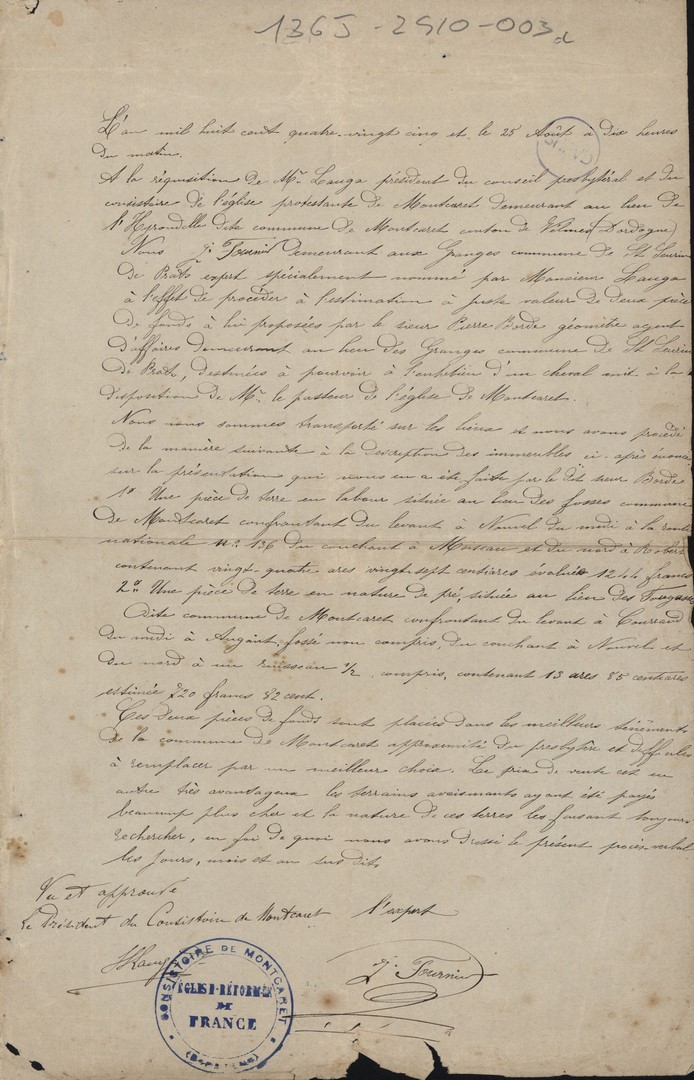 136J-2910-003d
L'an mil huit cent quatre-vingt cinq et le 25 Août à dix heures
du matin.
A la réquisition de Mr. Lauga président du conseil presbytéral et du
consistoire de l'église protestante de Montcaret demeurant au lieu de
l'Hyrondelle dite commune de Montcaret canton de Vélines (Dordogne)
Nous J. Fournié demeurant aux Granges commune de St Seurin
de Prats expert spécialement nommé par Monsieur Lauga
à l'effet de procéder à l'estimation à juste valeur de deux pièces
de fonds à lui proposées par le sieur Pierre Borde géomètre agent
d'affaires demeurant au lieu des Granges commune de St Seurin
de Prats, destinées à pourvoir à l'entretien d'un cheval mit à la
disposition de Mr. le pasteur de l'église de Montcaret.
Nous nous sommes transporté sur les lieux et nous avons procédé
de la manière suivante à la description des immeubles ci-après énoncés
sur la présentation qui nous en a été faite par le dit sieur Borde
1° Une pièce de terre en labour située au lieu des fosses commune
de Montcaret confrontant du levant à Nouvel du midi à la route
nationale n° 136 du couchant à et du nord à Robert
contenant vingt-quatre ares vingt-sept centiares évaluée 1244 francs
2° Une pièce de terre en nature de pré, située au lieu des
dite commune de Montcaret confrontant du levant à
du midi à fossé non compris, du couchant à Nouvel et
du nord à un ruisseau 1/2 compris, contenant 13 ares 85 centiares
estimée 720 francs 82 cent.
Ces deux pièces de fonds sont placées dans les meilleurs ténéments
de la commune de Montcaret approximité du presbytère et difficiles
à remplacer par un meilleur choix. Le prix de vente est en
outre très avantageux les terrains avoismants ayant été payés
beaucoup plus cher et la nature de ces terres les faisant toujours
rechercher, en foi de quoi nous avons dressé le présent procès-verbal
les jours, mois et an sus dits.
Vu et approuvé
Le Président du Consistoire de Montcaret l'expert
J. Fournié
CONSISTOIRE DE MONTCARET
ÉGLISE RÉFORMÉE
DE
FRANCE
(DORDOGNE)